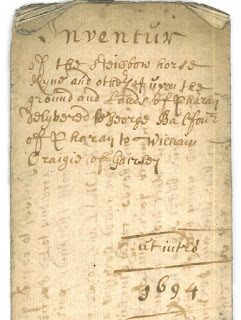 Inventur
of the Neisbow horse
Kyne and others upon the
ground and Lands of Pharay
delyvered by George Balfour
off Pharay to William
Craigie of Gairsey
1694